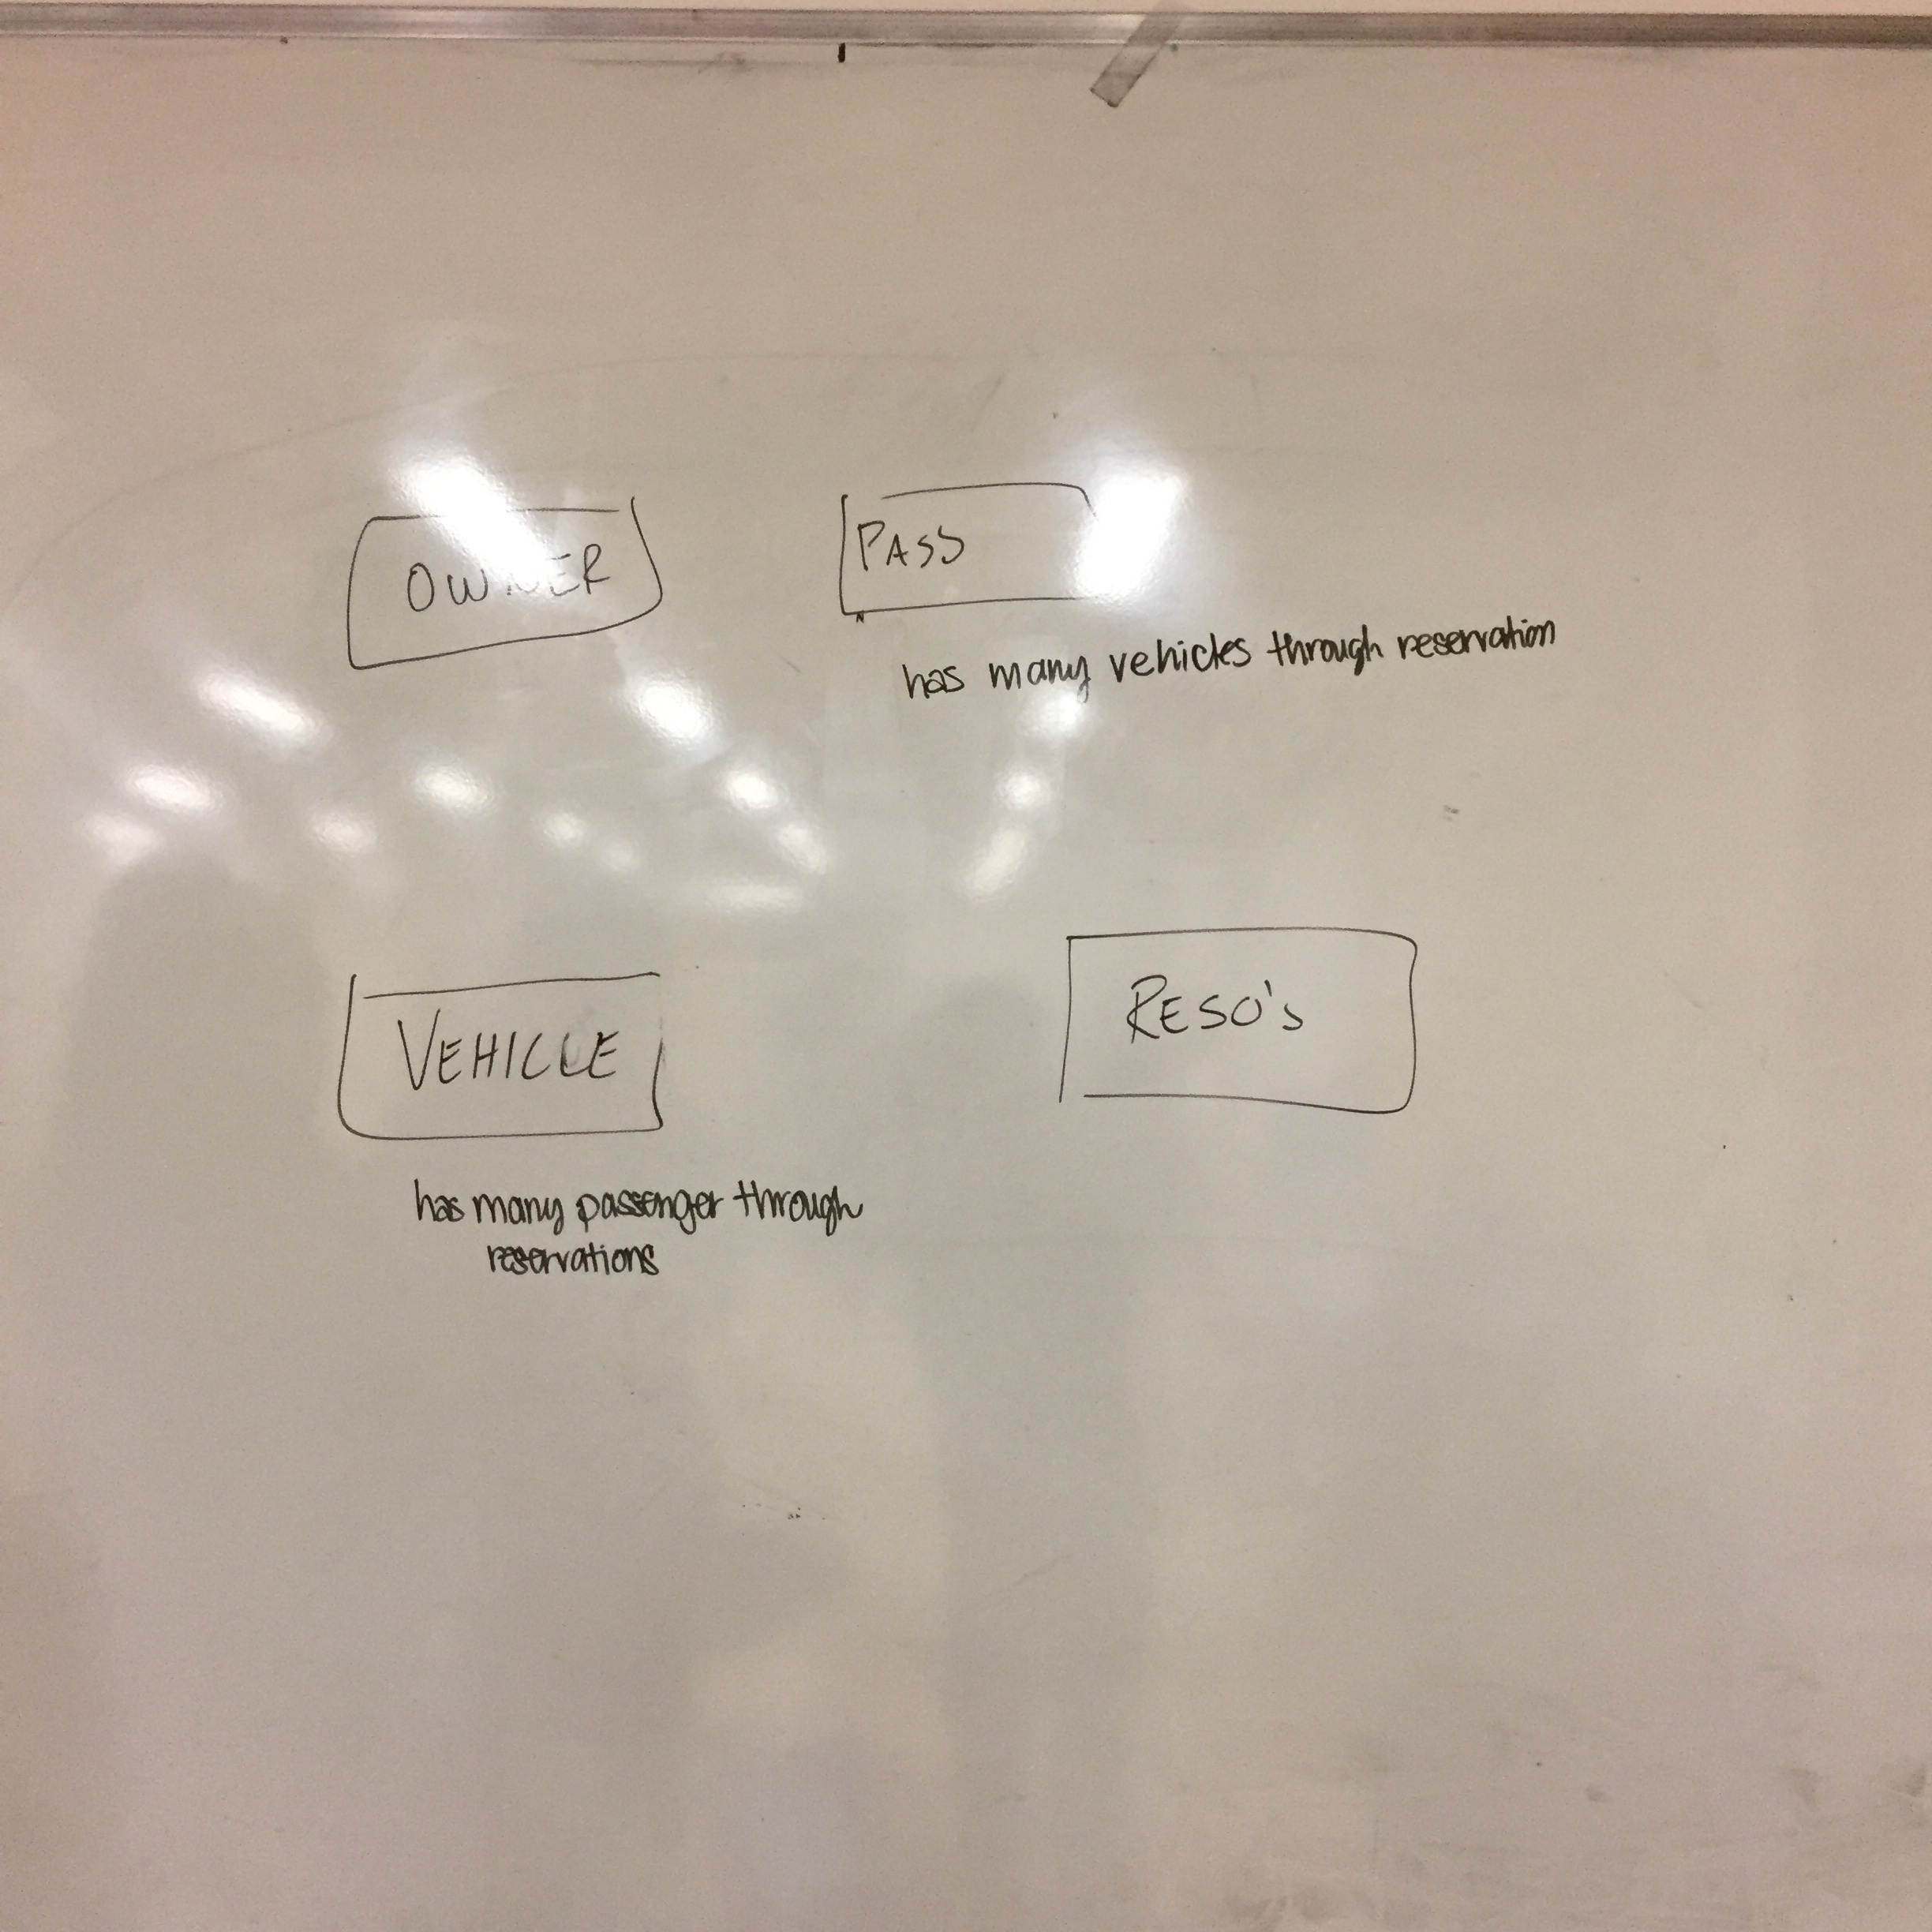 OWNER
PASS
has many vehicles through reservation
VEHICLE
RESO's
has many passenger through
reservations